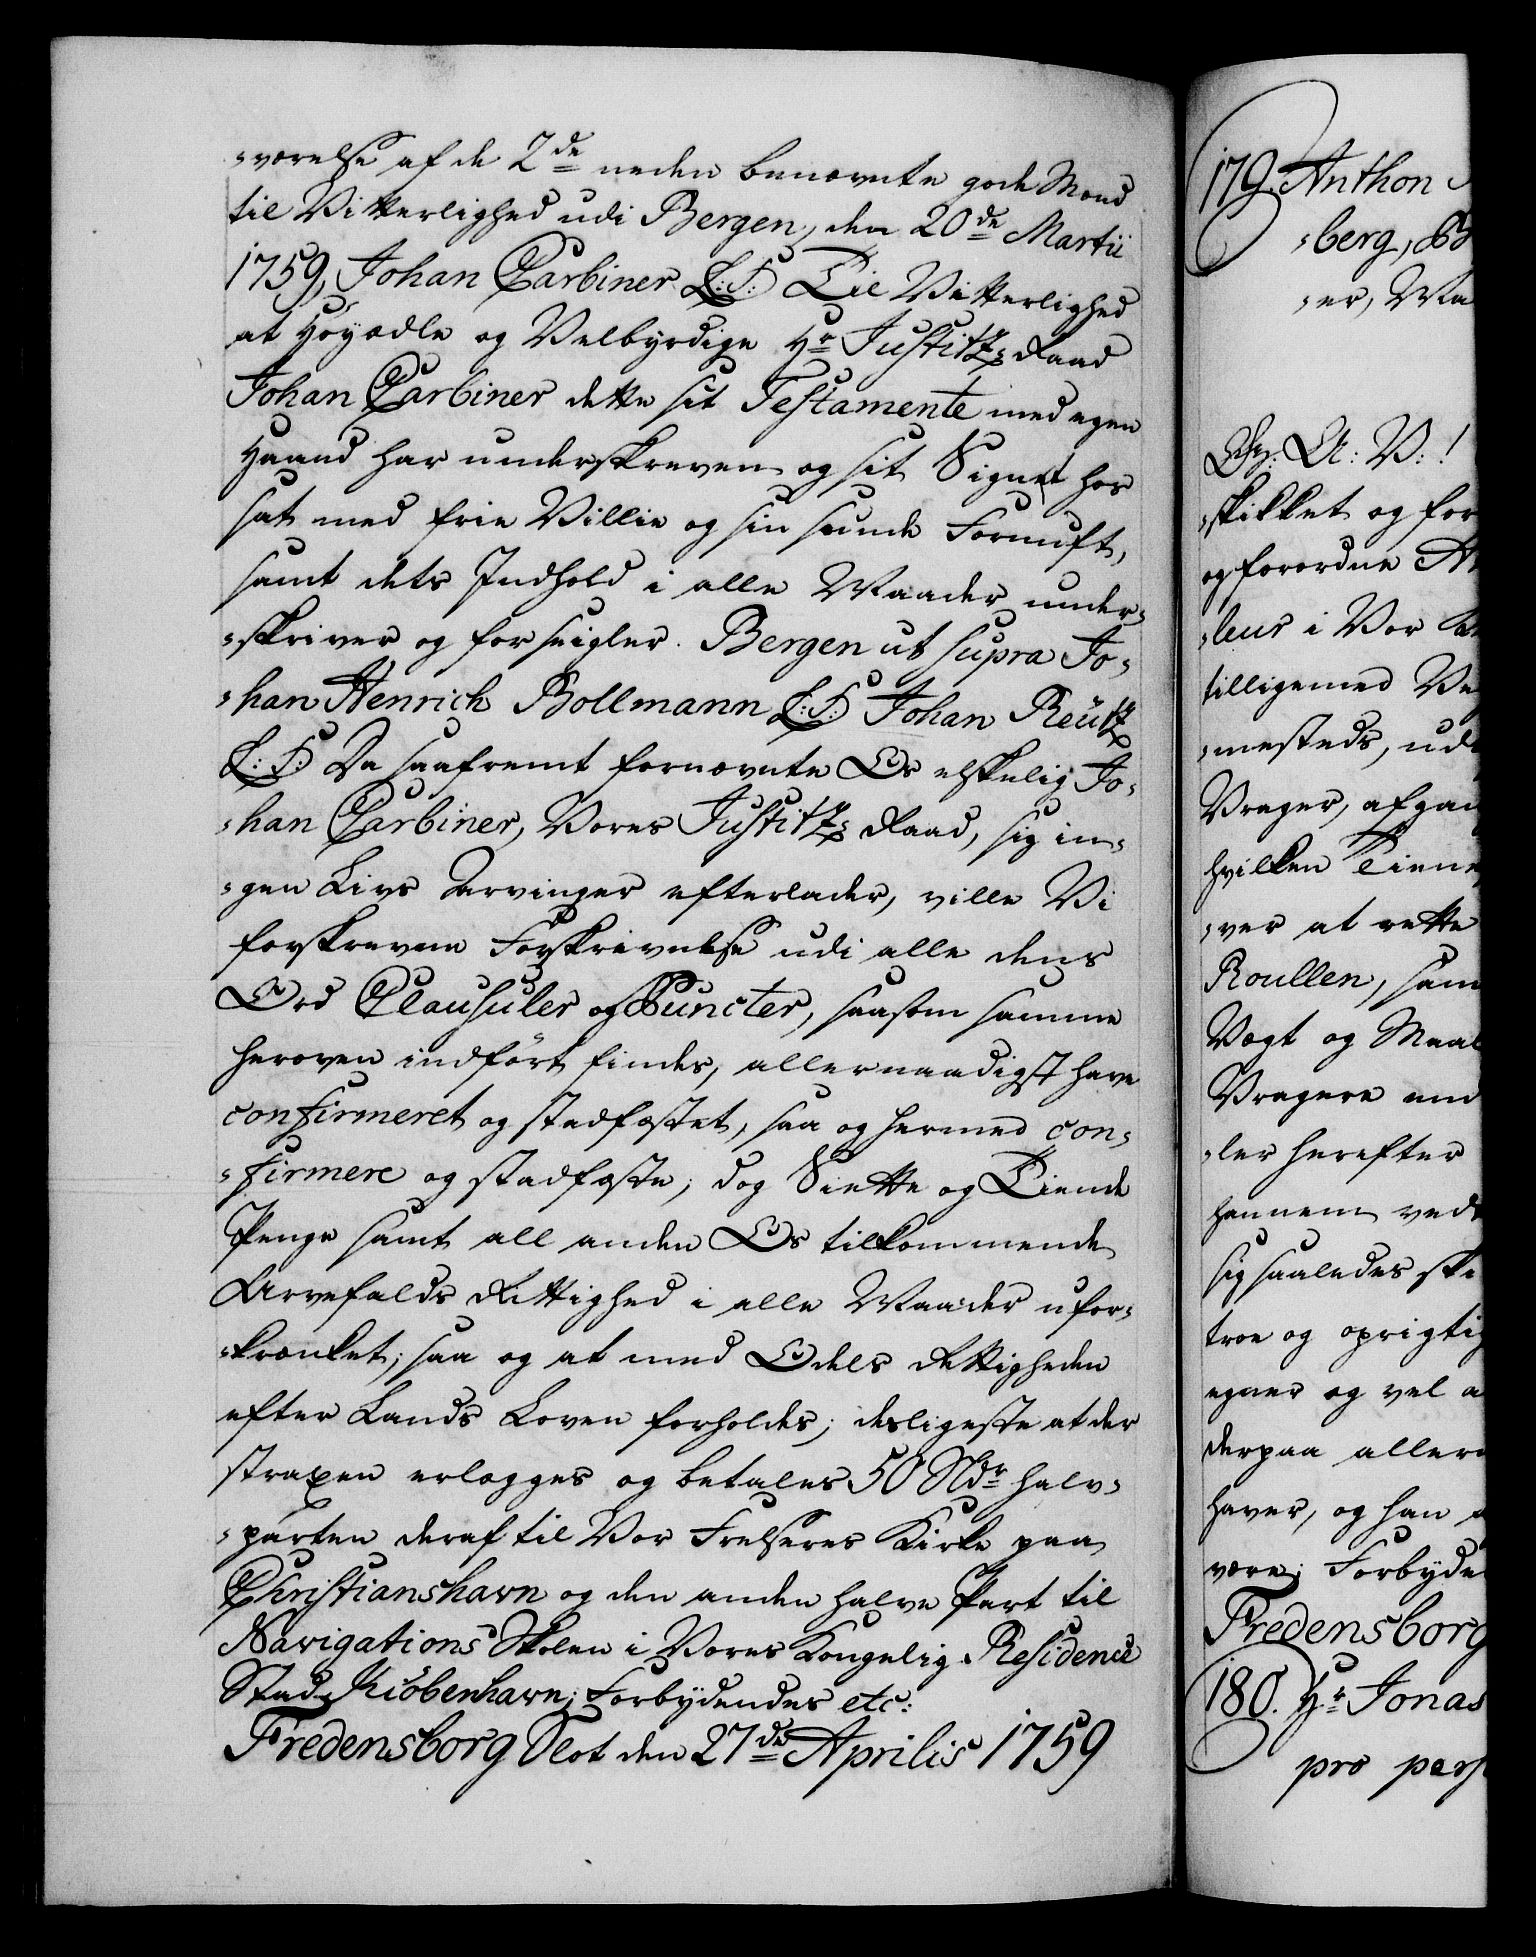 -værelse af de 2de neden benævnte gode Mænd
til Vitterlighed udi Bergen, den 20de Martii
1759, Johan Garbiner L:S: Til Vitterlighed
at Høyædle og Velbyrdige Hr Justitz-Raad
Johan Garbiner dette sit Testamente med egen
Haand har underskreven og sit Signet hos
sat med frie Villie og sin sunde Fornuft,
samt dets Indhold i alle Maader under-
-skriver og forseigler. Bergen ut supra Jo-
-han Henrich Bollmann L:S: Johan Reutz
L:S: Da saafremt fornævnte Os elskelig Jo-
-han Garbiner, Vores Justitz-Raad, sig in-
-gen Livs Arvinger efterlader, ville Vi
forskrevne Forskrivelse udi alle dens
Ord Clausuler og Puncter, saasom samme
heroven indført findes, allernaadigst have
confirmeret og stadfæstet, saa og hermed con-
-firmere og stadfæste; dog Siette og Tiende
Penge samt all anden Os tilkommende
Arvefalds Rettighed i alle Maader ufor-
-krænket; saa og at med Odels Rettigheden
efter Lands Loven forholdes; desligeste at der
straxen erlægges og betales 50 Rdr halv-
-parten deraf til Vor Frelseres Kirke paa
Christianshavn og den anden halve Part til
Navigations Skolen i Vores Kongelig Residence
Stad Kiøbenhavn; Forbydendes etc:
Fredensborg Slot den 27de Aprilis 1759
179. Anthon
-berg, B
-er, Ma
Gr: A: V:!
-skikket og for
og forordne A
-leur i Vor
tilligemed Ve
-mesteds, ud
Vrager, afgan
hvilken Tiene
-ver at rette
Roullen, sam
Vægt og Maal
Vragere and
-ler herefter
hannem ved
sig saaledes ski
troe og oprigtig
egner og vel a
derpaa allern
haver, og han
være; Forbyde
Fredensborg
180. Hr Jonas
pro pers